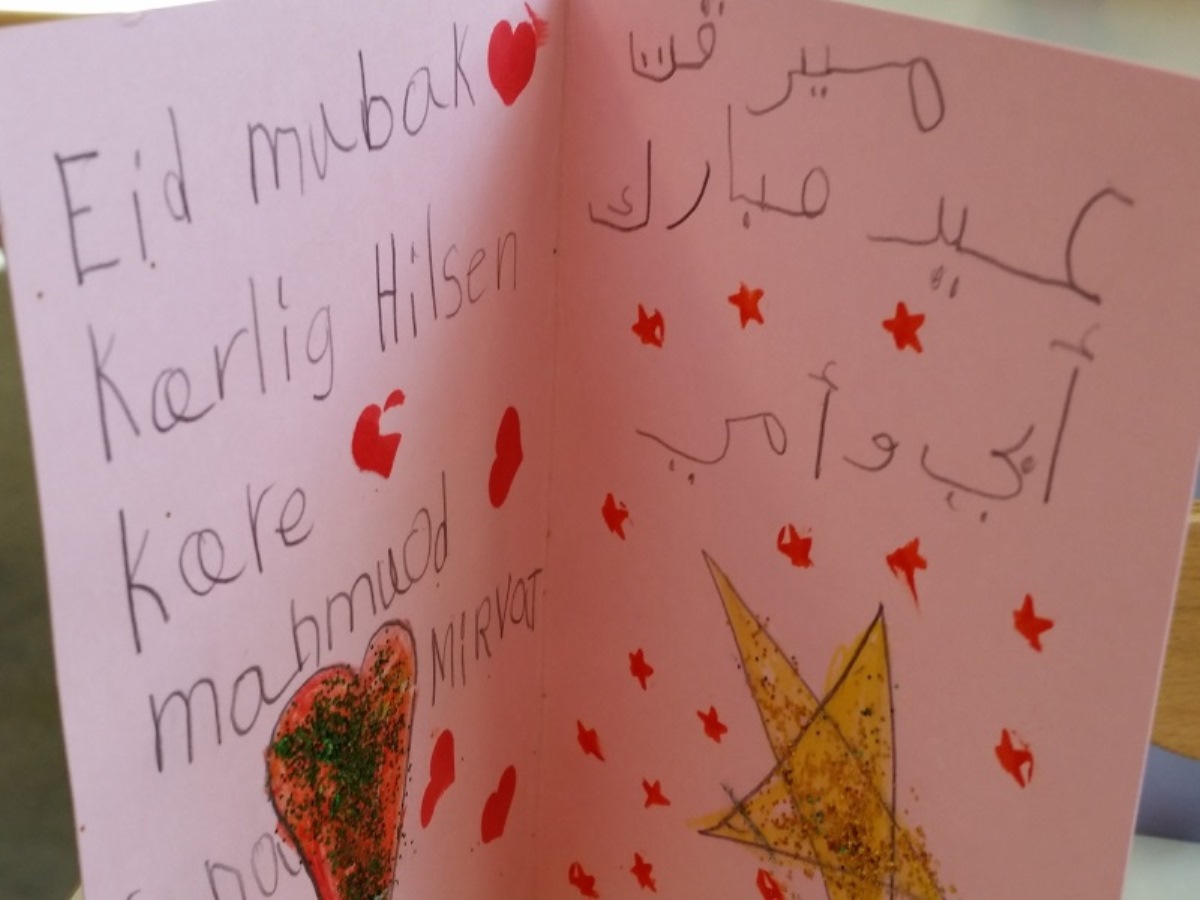 Eid mubak
Kærlig Hilsen
Kære
mahmuod
MiRVAT
ميرفت
عيد مبارك
أبي وأمي